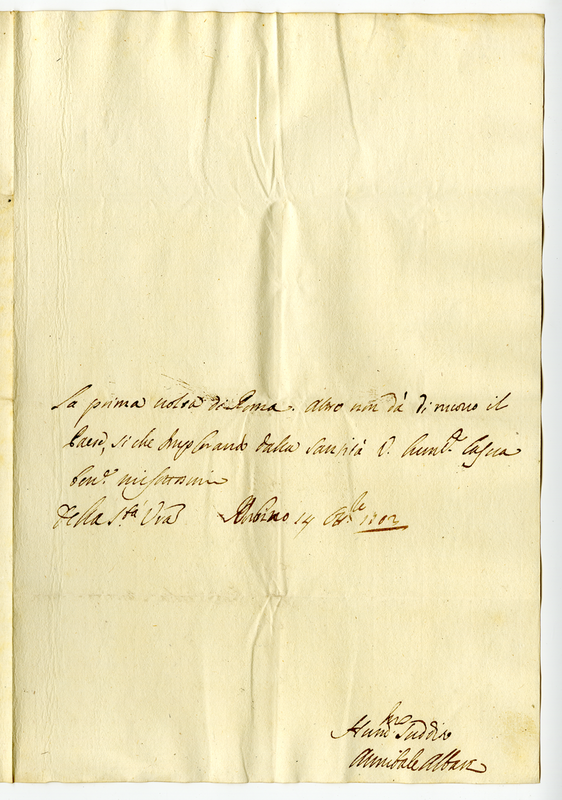 la prima uolta di Roma. altro non dà di nuouo il
Paese, si che Implorando dalla Santità V. humil.e la sua
Ben.e mi
Della S.tà Vra Urbino 14 8bre 1702
Hum.mo Suddito
Annibale Albani